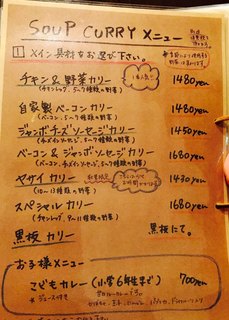 SOUP CURRY メニュー
1 メイン具材をお選び下さい。
チキン&野菜カリー 1480yen
(チキンレッグ、5〜7種類の野菜)
自家製ベーコンカリー 1480yen
(ベーコン、5〜7種類の野菜)
ジャンボチーズソーセージカリー 1450yen
(チーズインソーセージ、5〜7種類の野菜)
ベーコン&ジャンボソーセージカリー 1680yen
(ベーコン、チーズインソーセージ、5〜7種類の野菜)
ヤサイカリー 1430yen
(10〜13種類の野菜)
スペシャルカリー 1680yen
(チキンレッグ、9〜11種類の野菜)
黒板カリー 黒板にて。
お子様メニュー
こどもカレー (小学6年生まで) 700yen
*ジュース付き